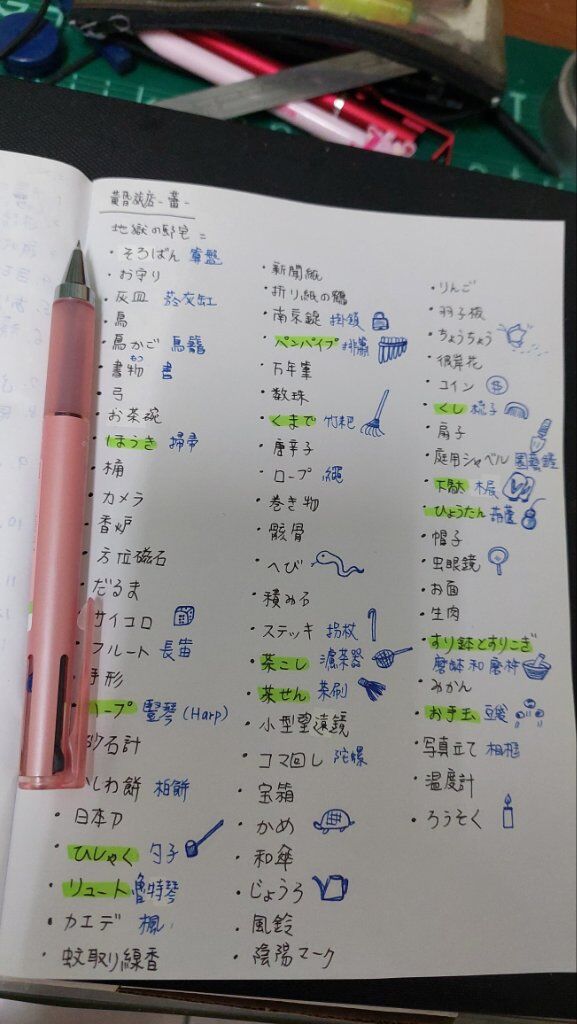 黄昏旅店-蕾-
地獄の邸宅=
・そろばん 算盤
・お守り
・灰皿 菸灰缸
・鳥
・鳥かご 鳥籠
・書物 書
・弓
・お茶碗
・ほうき 掃帚
・桶
・カメラ
・香炉
・方位磁石
・だるま
サイコロ
・フルート 長笛
手形
ハープ 豎琴(Harp)
砂石計
かしわ餅 柏餅
・日本刀
・ひしゃく 勺子
・リュート 魯特琴
・カエデ 楓
・蚊取り線香
・新聞紙
・折り紙の鶴
・南京錠 掛鎖
・パンパイプ 排簫
・万年筆
・数珠
・くまで 竹耙
・唐辛子
・ロープ 繩
・巻き物
・骸骨
・へび
・積み石
・ステッキ 拐杖
・茶こし 濾茶器
・茶せん 茶刷
・小型望遠鏡
・コマ回し 陀螺
・宝箱
・かめ
・和傘
・じょうろ
・風鈴
・陰陽マーク
・りんご
・羽子板
・ちょうちょう
・彼岸花
・コイン
・くし 梳子
・扇子
・庭用シャベル 園藝鏟
・下駄 木屐
・ひょうたん 葫蘆
・帽子
・虫眼鏡
・お面
・生肉
・すり鉢とすりこぎ
磨缽和磨杵
・みかん
・お手玉 豆袋
・写真立て 相框
・温度計
・ろうそく